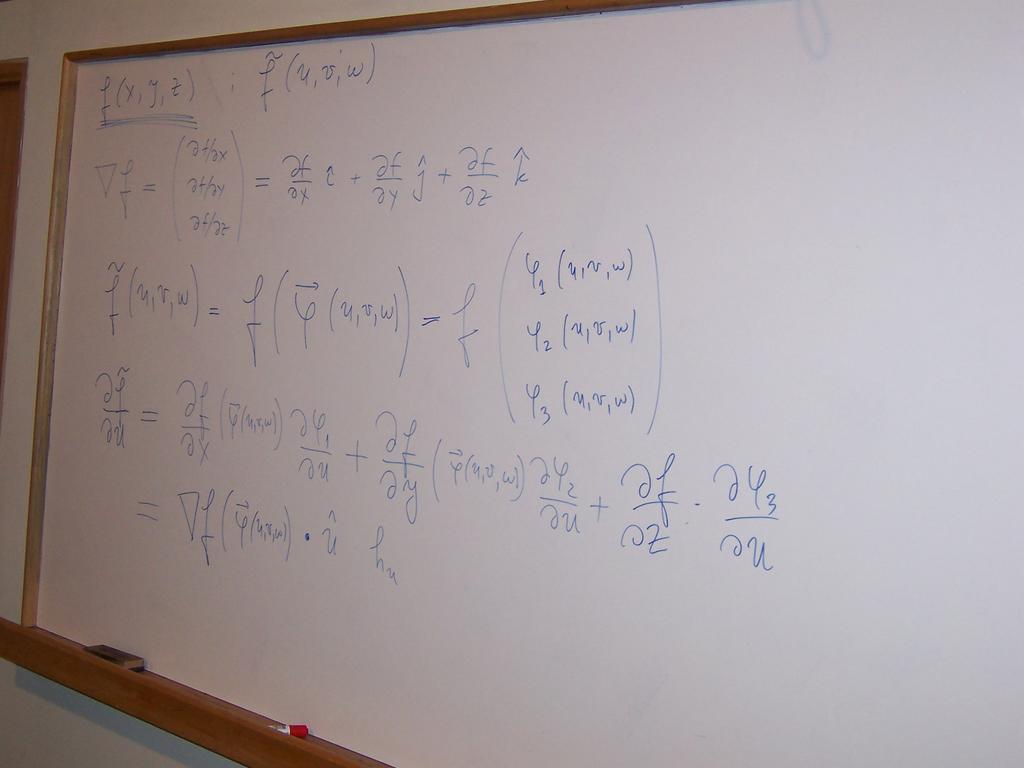 f(x,y,z) ; f̃(u,v,w)
∇f = (∂f/∂x ∂f/∂y ∂f/∂z) = ∂f/∂x î + ∂f/∂y ĵ + ∂f/∂z k̂
f̃(u,v,w) = f(φ⃗(u,v,w)) = f(φ₁(u,v,w) φ₂(u,v,w) φ₃(u,v,w))
∂f̃/∂u = ∂f/∂x (φ⃗(u,v,w)) ∂φ₁/∂u + ∂f/∂y (φ⃗(u,v,w)) ∂φ₂/∂u + ∂f/∂z · ∂φ₃/∂u
= ∇f(φ⃗(u,v,w)) · û hᵤ